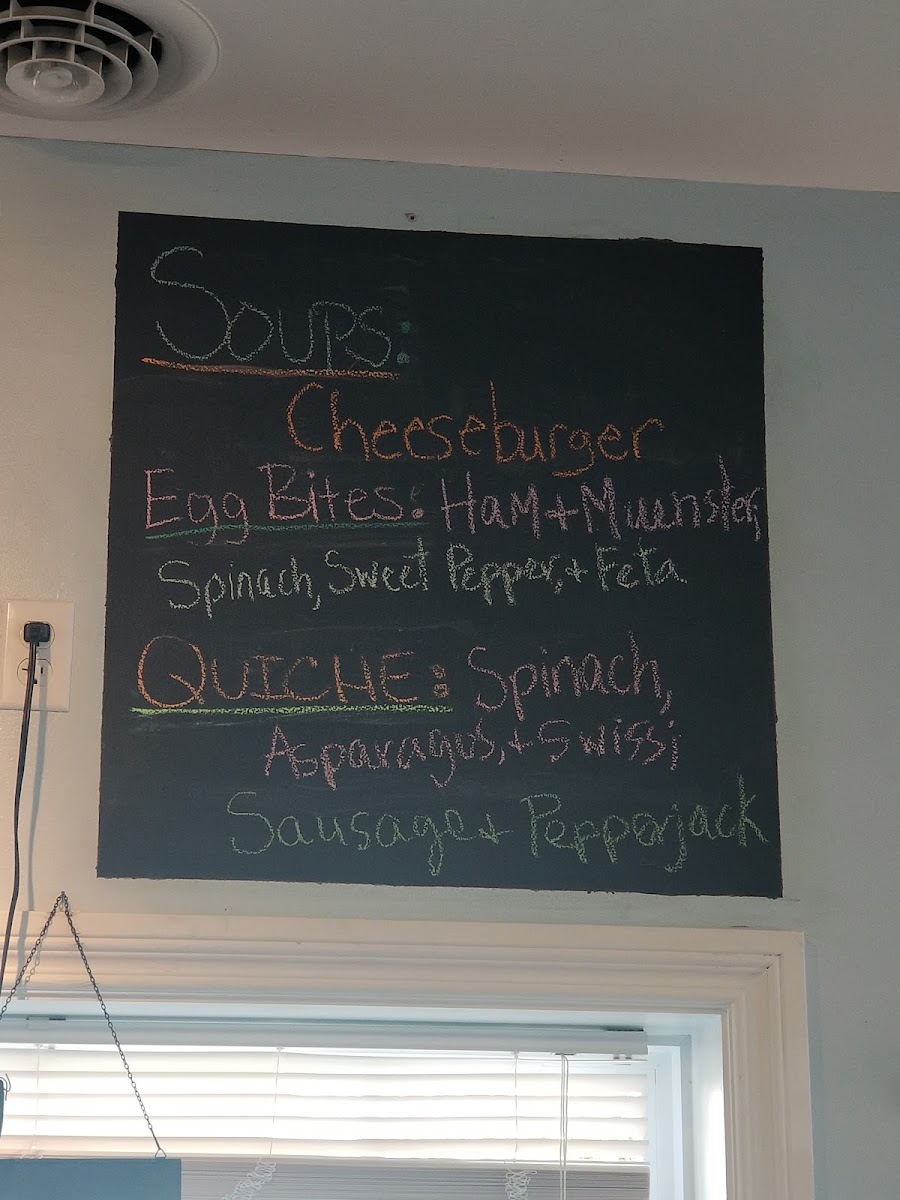 Soups:
Cheeseburger
Egg Bites: Ham + Muenster,
Spinach, Sweet Pepper, + Feta
QUICHE: Spinach,
Asparagus, + Swiss;
Sausage + Pepperjack